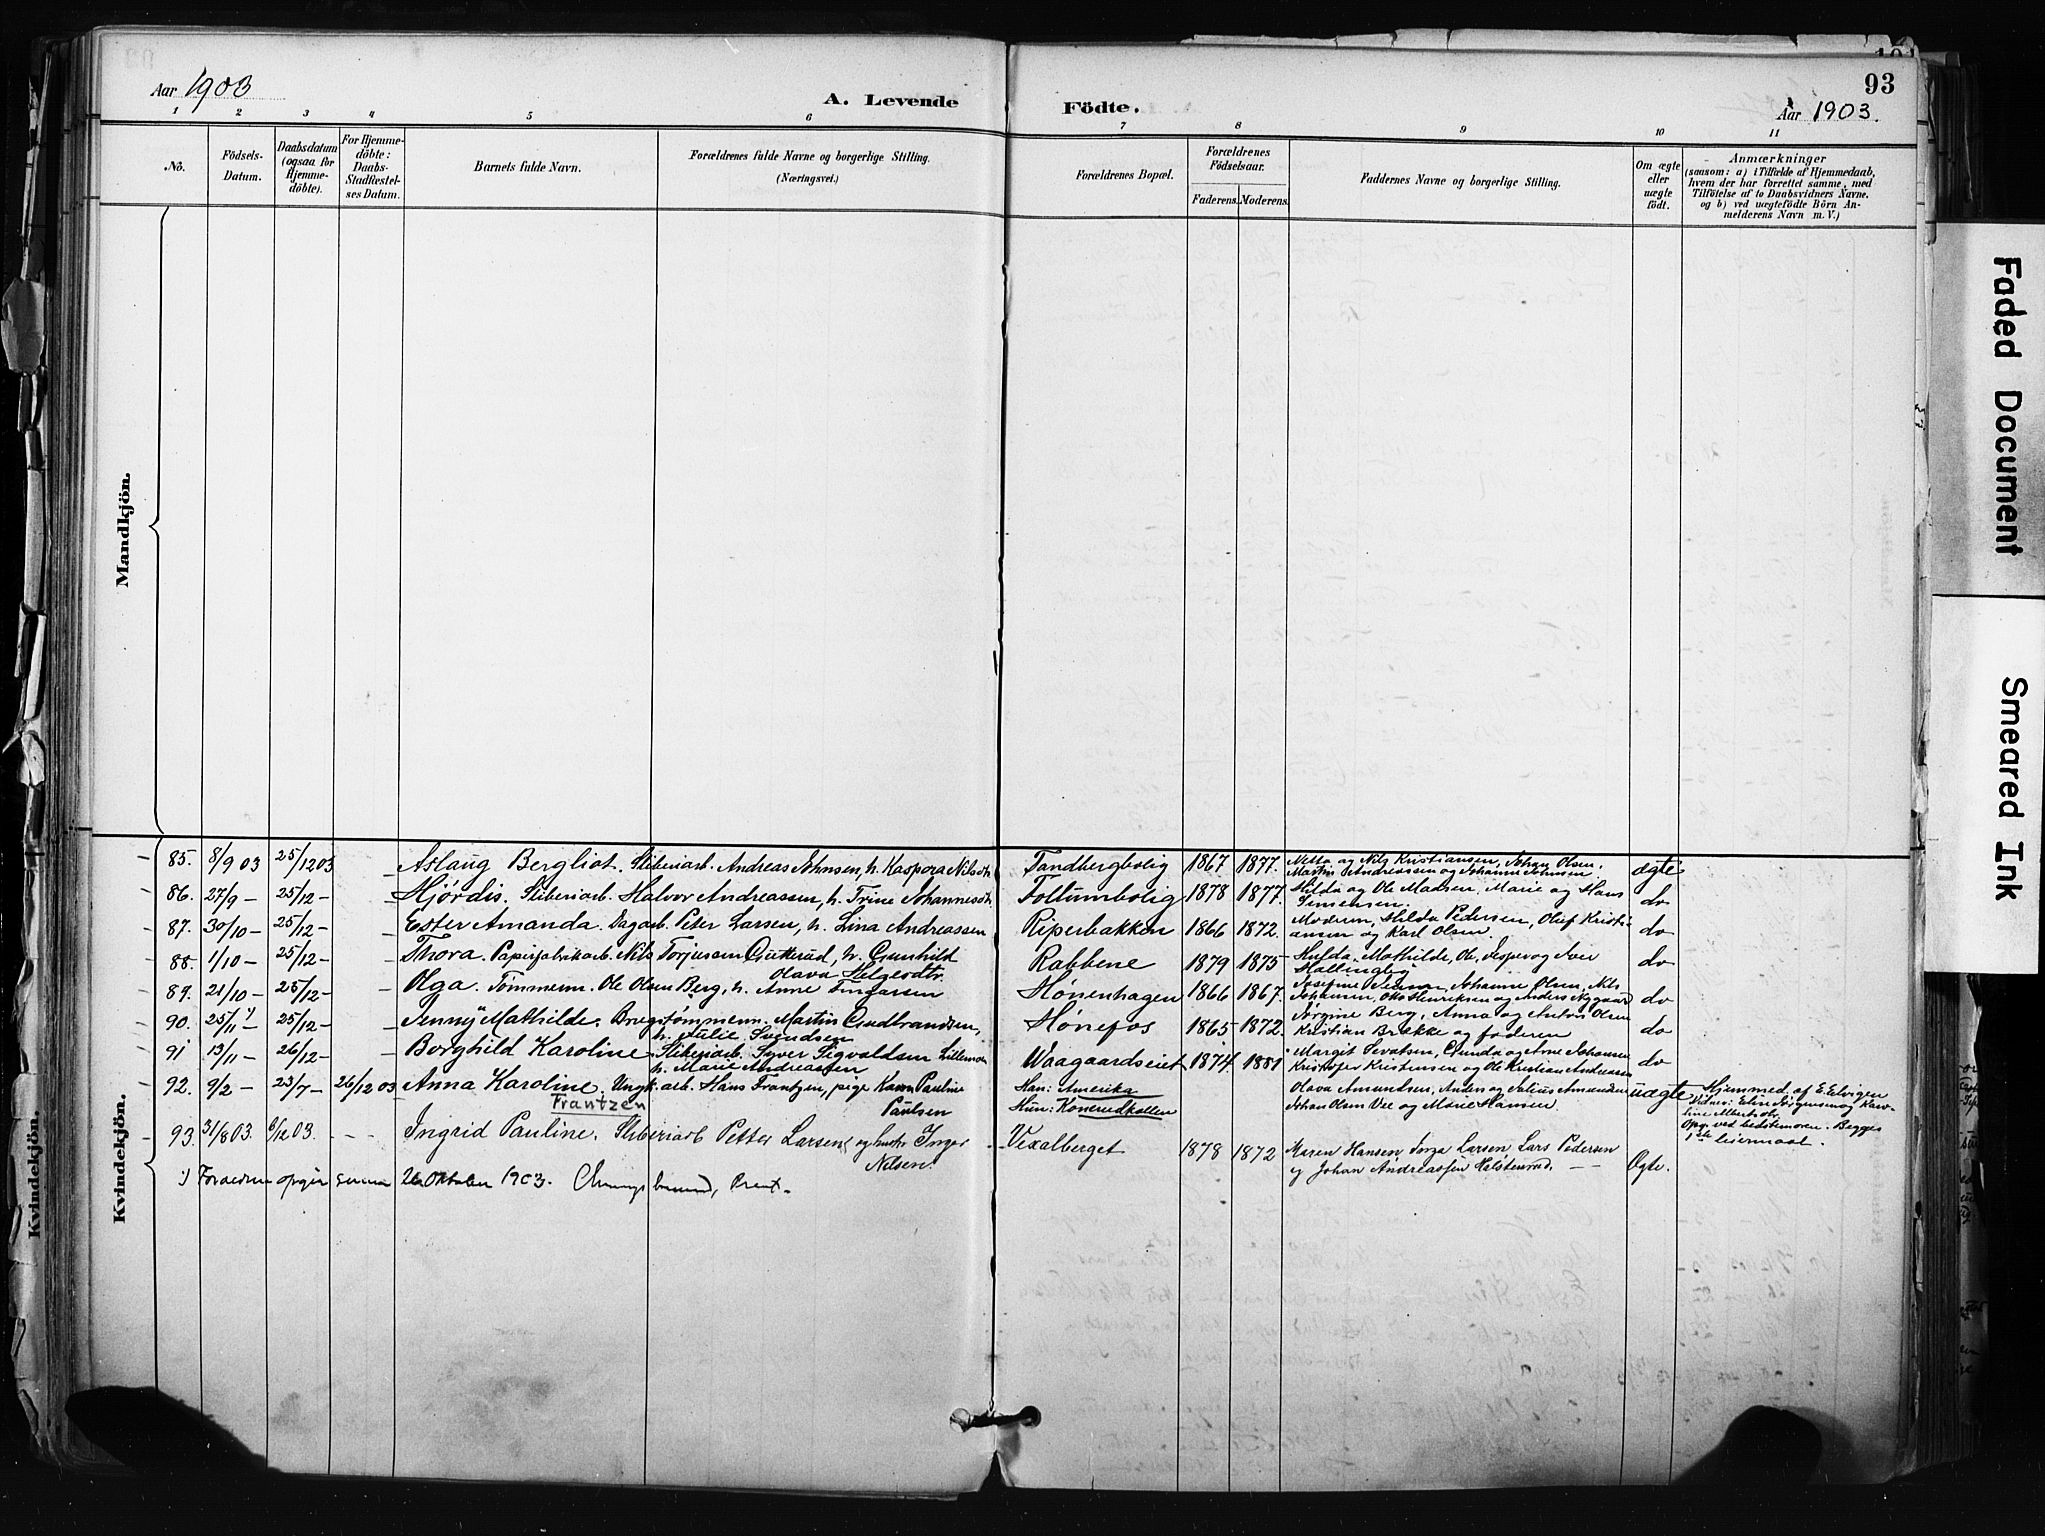 93
Aar 1903
A. Levende Födte.
Aar 1903.
1 2 3 4 5 6 7 8 9 10 11
No.
Födsels-Datum.
Daabsdatum (ogsaa for Hjemmedöbte).
For Hjemmedöbte: Daabs-Stadfæstelses Datum.
Barnets fulde Navn.
Forældrenes fulde Navne og borgerlige Stilling.
(Næringsvei.)
Forældrenes Bopæl.
Forældrenes Födselsaar.
Faderens. Moderens.
Faddernes Navne og borgerlige Stilling.
Om ægte eller uægte født.
Anmærkninger
(saasom: a) i Tilfælde af Hjemmedaab, hvem der har forrettet samme, med Tilföielse af to Daabsvidners Navne, og b) ved uægtefödte Börn Anmelderens Navn m. V.)
Mandkjön.
Kvindekjön.
Kvindekjön.
85. 8/9 03 25/12 03 – Aslaug Bergliot. Sliberiarb. Andreas Johnsen, h. Kaspora Nilsdtr. Tandbergbolig 1867 1877. Netta og Nils Kristiansen, Johan Olsen, Martin Andreassen og Johanne Johnsen ægte
86. 27/9 – 25/12 – – Hjördis. Sliberiarb. Halvor Andreassen, h. Trine Johannesdtr. Follumbolig 1878 1877. Hilda og Ole Madsen, Marie og Hans Simensen. do
87. 30/10 – 25/12 – – Ester Amanda. Dagarb. Peter Larsen, h. Lina Andreassen Riperbakken 1866 1872. Moderen, Hilda Pedersen, Oluf Kristiansen og Karl Olsen. do
88. 1/10 – 25/12 – – Thora. Papirfabrikarb. Nils Torjusen Gutterud, h. Gunhild Olava Helgesdtr. Rabbene 1879 1875 Hulda, Mathilde, Ole, Jesper og Iver Hallingby do
89. 21/10 – 25/12 – – Olga. Tömmerm. Ole Olsen Berg, h. Anne Tingarsen Hönenhagen 1866 1867. Josefine Jensen, Johanne Olsen, Nils Johansen, Otto Henriksen og Anders Nygaard do
90. 25/11 – 1) 25/12 – – Jenny Mathilde. Brugstömmerm. Martin Gudbrandsen, h. Julie Svendsen Hönefos 1865 1872. Jörgine Berg, Anna og Anton Olsen Kristian Brække og faderen do
91 13/11 – 26/12 – – Borghild Karoline. Sliberiarb. Syver Sigvaldsen Lillemoen h. Marie Andreassen Waagaardseiet 1874 1881 Margit Sevatsen, Gunda og Arne Johansen, Kristofer Kristensen og Ole Kristian Andreasen do
92. 9/2 – 23/7 – 26/12 03 Anna Karoline. Ungk. arb. Hans Frantzen, pige Karen Pauline Paulsen Han: Amerika Hun: Konerudkollen Olava Amundsen, Anders og Julius Amundsen Johan Olsen Vee og Marie Hansen. uægte Hjemmed. af E. Elvigen
Frantzen
Vidner: Elin Jörgensen og Karoline Albertsdtr.
Opg. ved bedstemoren. Begges 1ste leiermaal.
93. 31/8 03. 6/12 03. – – – Ingrid Pauline. Sliberiarb Petter Larsen og hustr. Inger Nilsen. Vexalberget 1878 1872 Maren Hansen Torga Larsen, Lars Pedersen og Johan Andreassen Helstenrud. – – Ægte.
1) Foræld. opgir senere 26 Oktober 1903.